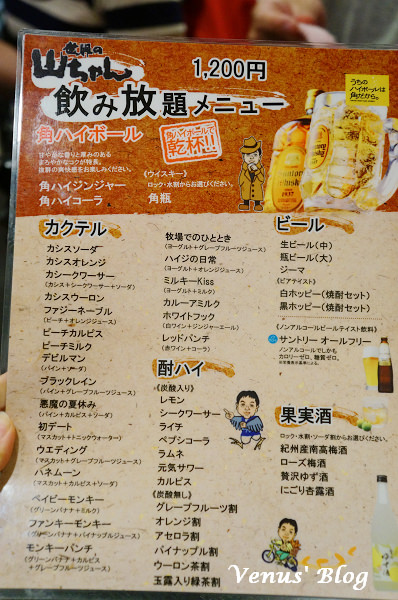 世界の
山ちゃん
1,200円
飲み放題メニュー
うちの
ハイボールは
角だから。
角ハイボール
甘やかな香りと厚みのある
まろやかなコクが特長。
抜群の爽快感をお楽しみください。
角ハイジンジャー
角ハイコーラ
角ハイボールで
乾杯!!
《ウイスキー》
ロック・水割からお選びください。
角瓶
カクテル
カシスソーダ
カシスオレンジ
カシークワーサー
(カシス+シークワーサー+ソーダ)
カシスウーロン
ファジーネーブル
(ピーチ+オレンジジュース)
ピーチカルピス
ピーチミルク
デビルマン
(パイン+ソーダ)
ブラックレイン
(パイン+グレープフルーツジュース)
悪魔の夏休み
(パイン+カルピス+ソーダ)
初デート
(マスカット+トニックウォーター)
ウエディング
(マスカット+グレープフルーツジュース)
ハネムーン
(マスカット+カルピス+ソーダ)
ベイビーモンキー
(グリーンバナナ+ミルク)
ファンキーモンキー
(グリーンバナナ+パイナップルジュース)
モンキーパンチ
(グリーンバナナ+カルピス
+グレープフルーツジュース)
牧場でのひととき
(ヨーグルト+グレープフルーツジュース)
ハイジの日常
(ヨーグルト+オレンジジュース)
ミルキーKiss
(ヨーグルト+ミルク)
カルーアミルク
ホワイトフック
(白ワイン+ジンジャーエール)
レッドパンチ
(赤ワイン+コーラ)
酎ハイ
(炭酸入り)
レモン
シークワーサー
ライチ
ペプシコーラ
ラムネ
元気サワー
カルピス
(炭酸無し)
グレープフルーツ割
オレンジ割
アセロラ割
パイナップル割
ウーロン茶割
玉露入り緑茶割
ビール
生ビール(中)
瓶ビール(大)
ジーマ
(ビアテイスト)
白ホッピー(焼酎セット)
黒ホッピー(焼酎セット)
《ノンアルコールビールテイスト飲料》
サントリー オールフリー
ノンアルコールでしかも
カロリーゼロ、糖質ゼロ。
果実酒
ロック・水割・ソーダ割からお選びください。
紀州産南高梅酒
ローズ梅酒
贅沢ゆず酒
にごり杏露酒
Venus' Blog